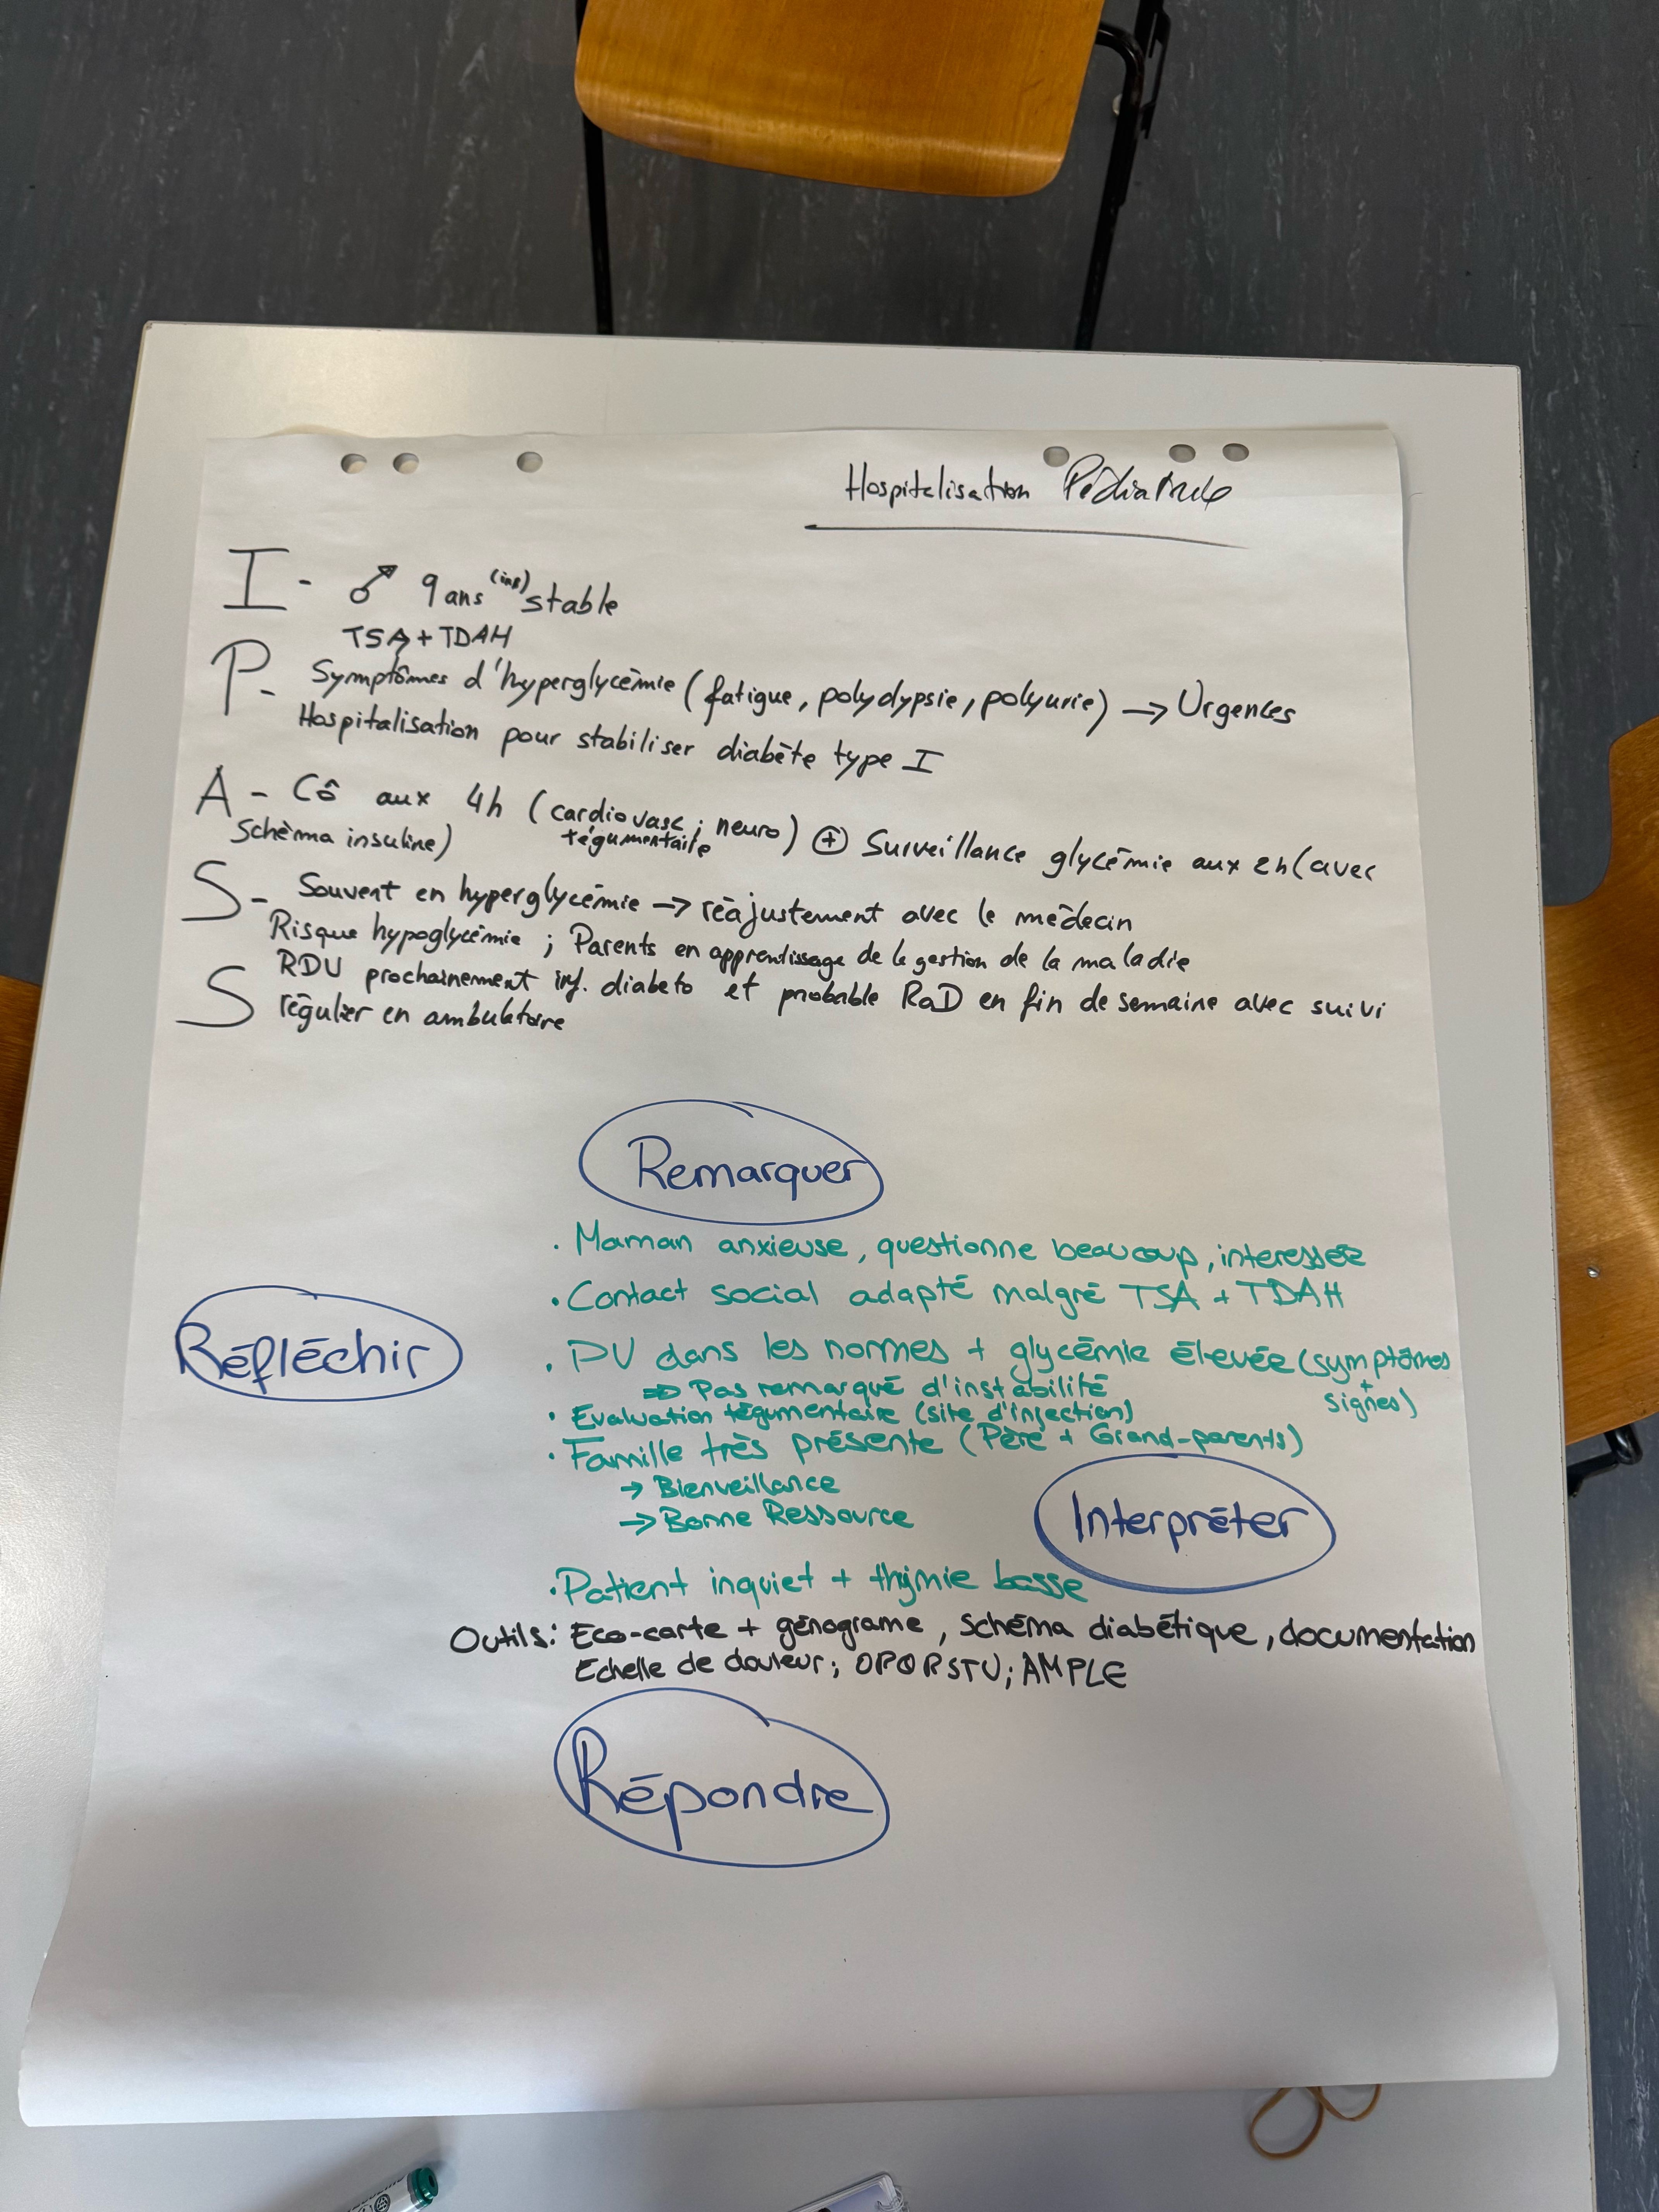 Hospitalisation Pédiatrie
I - ♂ 9 ans (ins) stable
TSA + TDAH
P - Symptômes d'hyperglycémie (fatigue, polydypsie, polyurie) → Urgences
Hospitalisation pour stabiliser diabète type I
A - Cô aux 4h (cardiovasc ; neuro) ⊕ Surveillance glycémie aux 2h (avec
tégumentaire
Schéma insuline)
S - Souvent en hyperglycémie → réajustement avec le médecin
Risque hypoglycémie ; Parents en apprentissage de la gestion de la maladie
S RDV prochainement inf. diabéto et probable RaD en fin de semaine avec suivi
régulier en ambulatoire
Remarquer
· Maman anxieuse, questionne beaucoup, interessée
· Contact social adapté malgré TSA + TDAH
Réfléchir
· PV dans les normes + glycémie élevée (symptômes
+
signes)
⇒ Pas remarqué d'instabilité
· Evaluation tégumentaire (site d'injection)
· Famille très présente (Père + Grand-parents)
→ Bienveillance
→ Bonne Ressource
Interpréter
· Patient inquiet + thymie basse
Outils: Eco-carte + génograme, Schéma diabétique, documentation
Echelle de douleur; OPQRSTU; AMPLE
Répondre